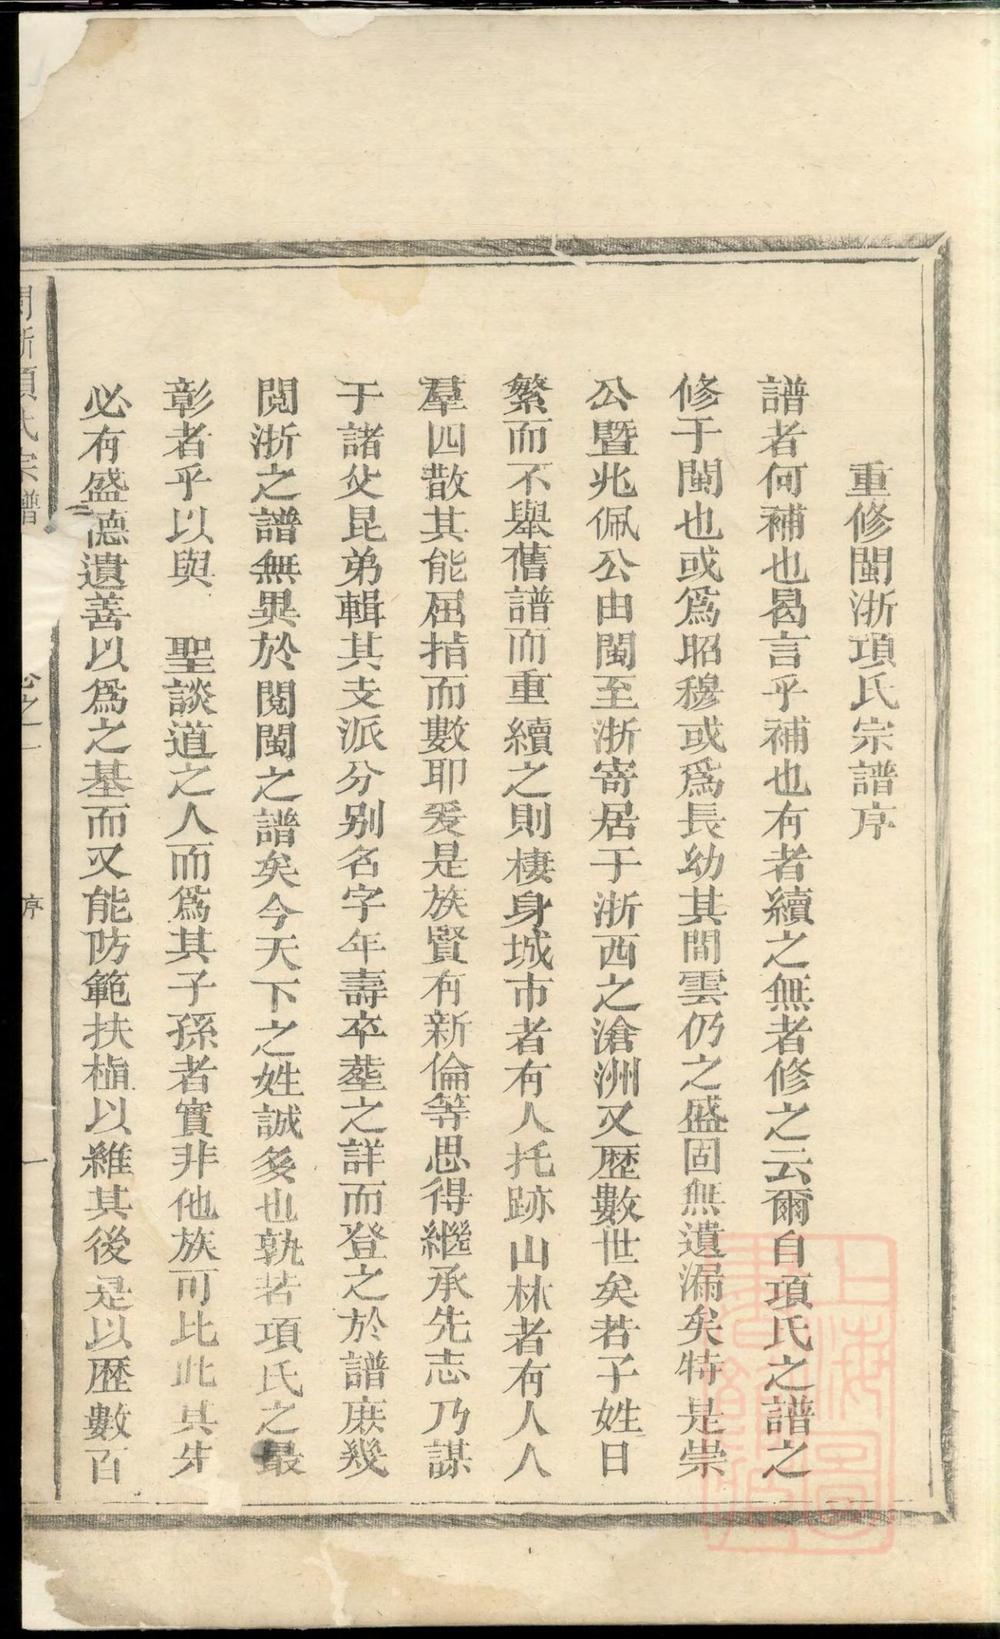 重修閩浙項氏宗譜序
譜者何補也曷言乎補也有者續之無者修之云爾自項氏之譜之
修于閩也或爲昭穆或爲長幼其間雲仍之盛固無遺漏矣特是崇
公暨兆佩公由閩至浙寄居于浙西之滄洲又歷數世矣若子姓日
繁而不舉舊譜而重續之則棲身城市者有人托跡山林者有人人
羣四散其能屈指而數耶爰是族賢有新倫等思得繼承先志乃謀
于諸父昆弟輯其支派分别名字年壽卒塟之詳而登之於譜庶幾
閲浙之譜無異於閲閩之譜矣今天下之姓誠多也孰若項氏之最
彰者乎以與 聖談道之人而爲其子孫者實非他族可比此其先
必有盛德遺善以爲之基而又能防範扶植以維其後是以歷數百
閩浙項氏宗譜 卷之一 序 一
上海圖書館藏